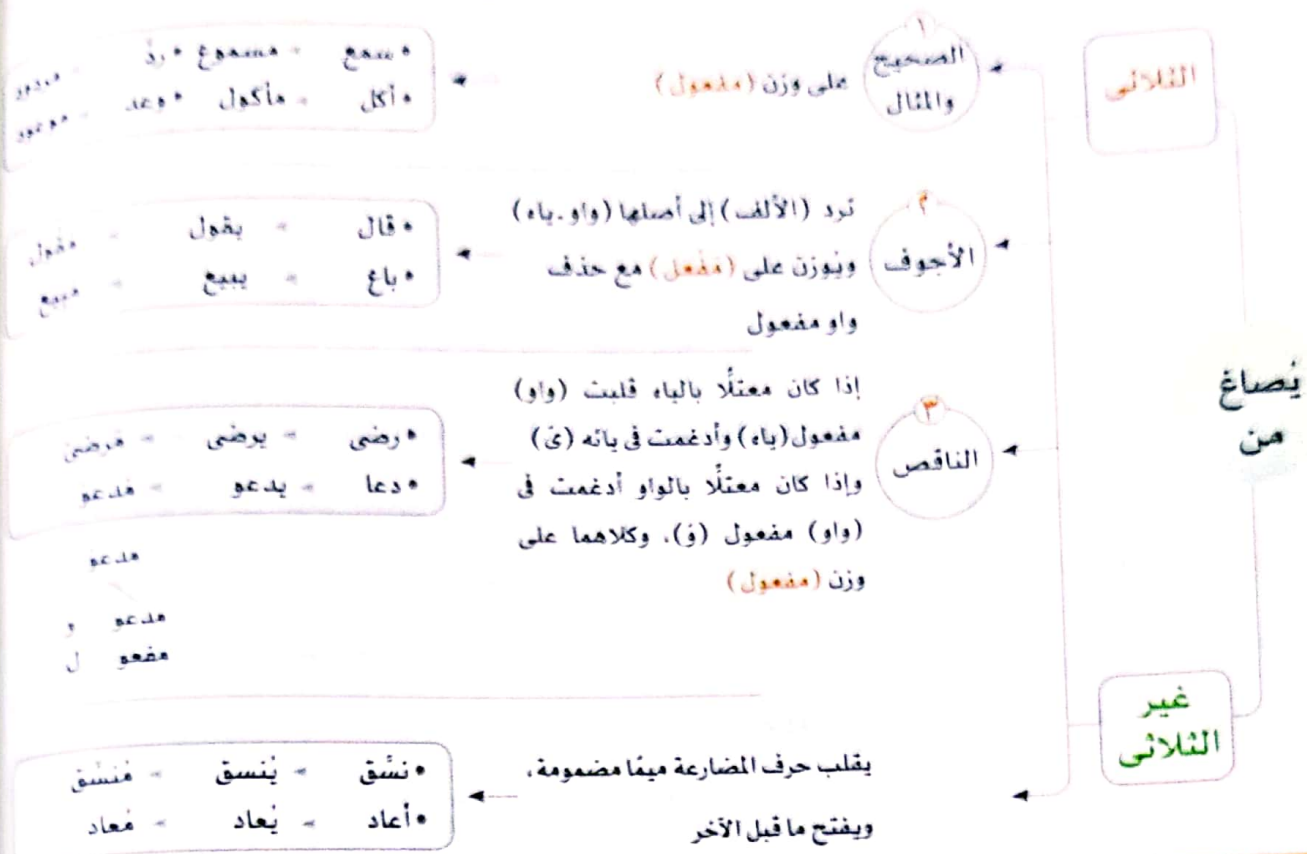 يُصاغ
من
الثلاثى
١
الصحيح
والمثال
على وزن (مفعول)
• سمع - مسموع • ردَّ - مردود
• أكل - مأكول • وعد - موعود
٢
الأجوف
ترد (الألف) إلى أصلها (واو - ياء)
ويُوزن على (مَفْعل) مع حذف
واو مفعول
• قال - يقول - مقول
• باع - يبيع - مبيع
٣
الناقص
إذا كان معتلًّا بالياء قلبت (واو)
مفعول (ياء) وأدغمت فى يائه (ىّ)
وإذا كان معتلًّا بالواو أدغمت فى
(واو) مفعول (وّ)، وكلاهما على
وزن (مفعول)
• رضى - يرضى - مَرضىّ
• دعا - يدعو - مَدعوّ
مدعوّ
مدعو و
مفعو ل
غير
الثلاثى
يقلب حرف المضارعة ميمًا مضمومة،
ويفتح ما قبل الآخر
• نسَّق - يُنسق - مُنسَّق
• أعاد - يُعاد - مُعاد